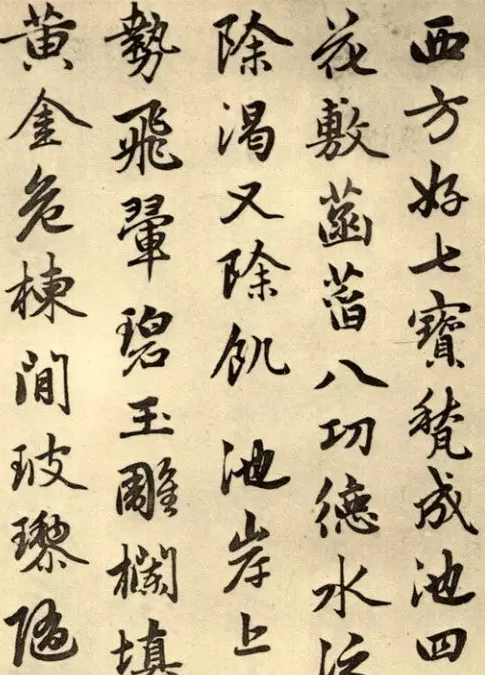 西方好七寶甃成池四
花敷菡萏八功德水泛
除渴又除飢池岸上
勢飛翬碧玉雕欄填
黃金危棟間玻瓈隱